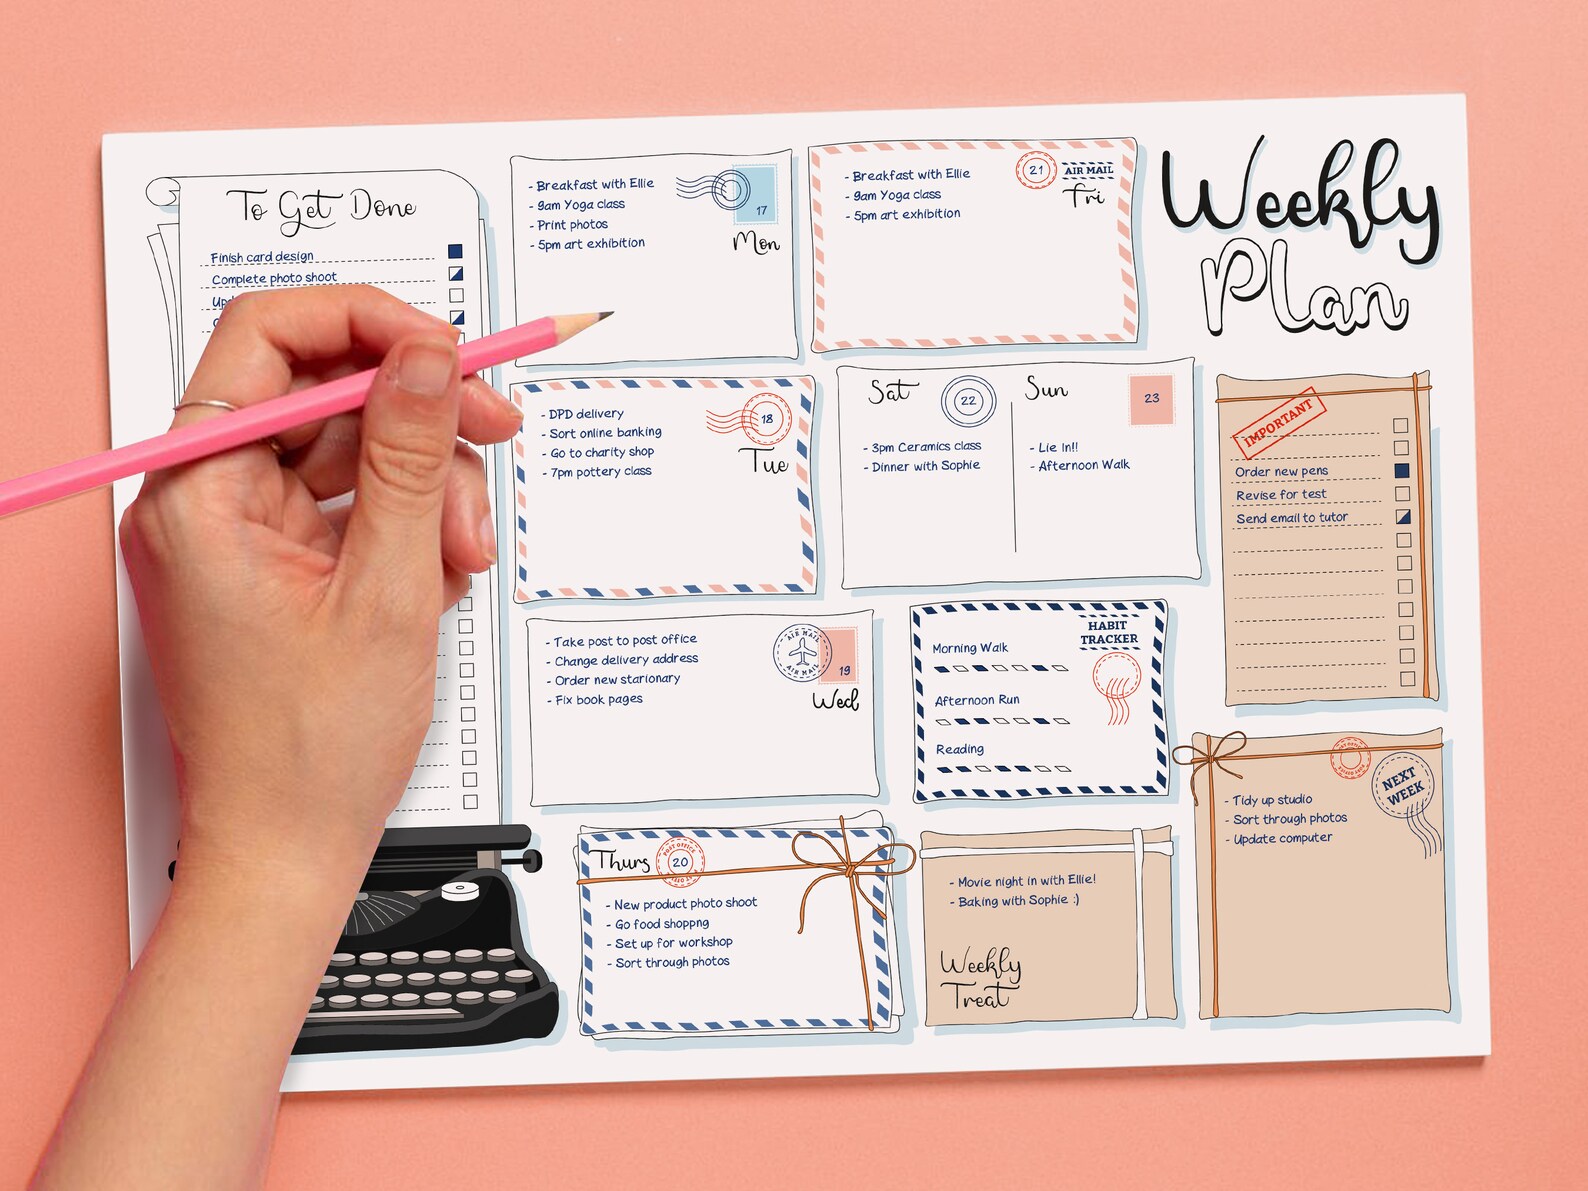 To Get Done
Finish card design
Complete photo shoot
- Breakfast with Ellie
- 9am Yoga class
- Print photos
- 5pm art exhibition
17
Mon
- Breakfast with Ellie
- 9am Yoga class
- 5pm art exhibition
21
AIR MAIL
Fri
Weekly
Plan
- DPD delivery
- Sort online banking
- Go to charity shop
- 7pm pottery class
18
Tue
Sat
22
- 3pm Ceramics class
- Dinner with Sophie
Sun
23
- Lie In!!
- Afternoon Walk
IMPORTANT
Order new pens
Revise for test
Send email to tutor
- Take post to post office
- Change delivery address
- Order new starionary
- Fix book pages
AIR MAIL
AIR MAIL
19
Wed
HABIT
TRACKER
Morning Walk
Afternoon Run
Reading
Thurs
POST OFFICE
20
POST OFFICE
- New product photo shoot
- Go food shoppng
- Set up for workshop
- Sort through photos
- Movie night in with Ellie!
- Baking with Sophie :)
Weekly
Treat
POST OFFICE
POST OFFICE
NEXT
WEEK
- Tidy up studio
- Sort through photos
- Update computer